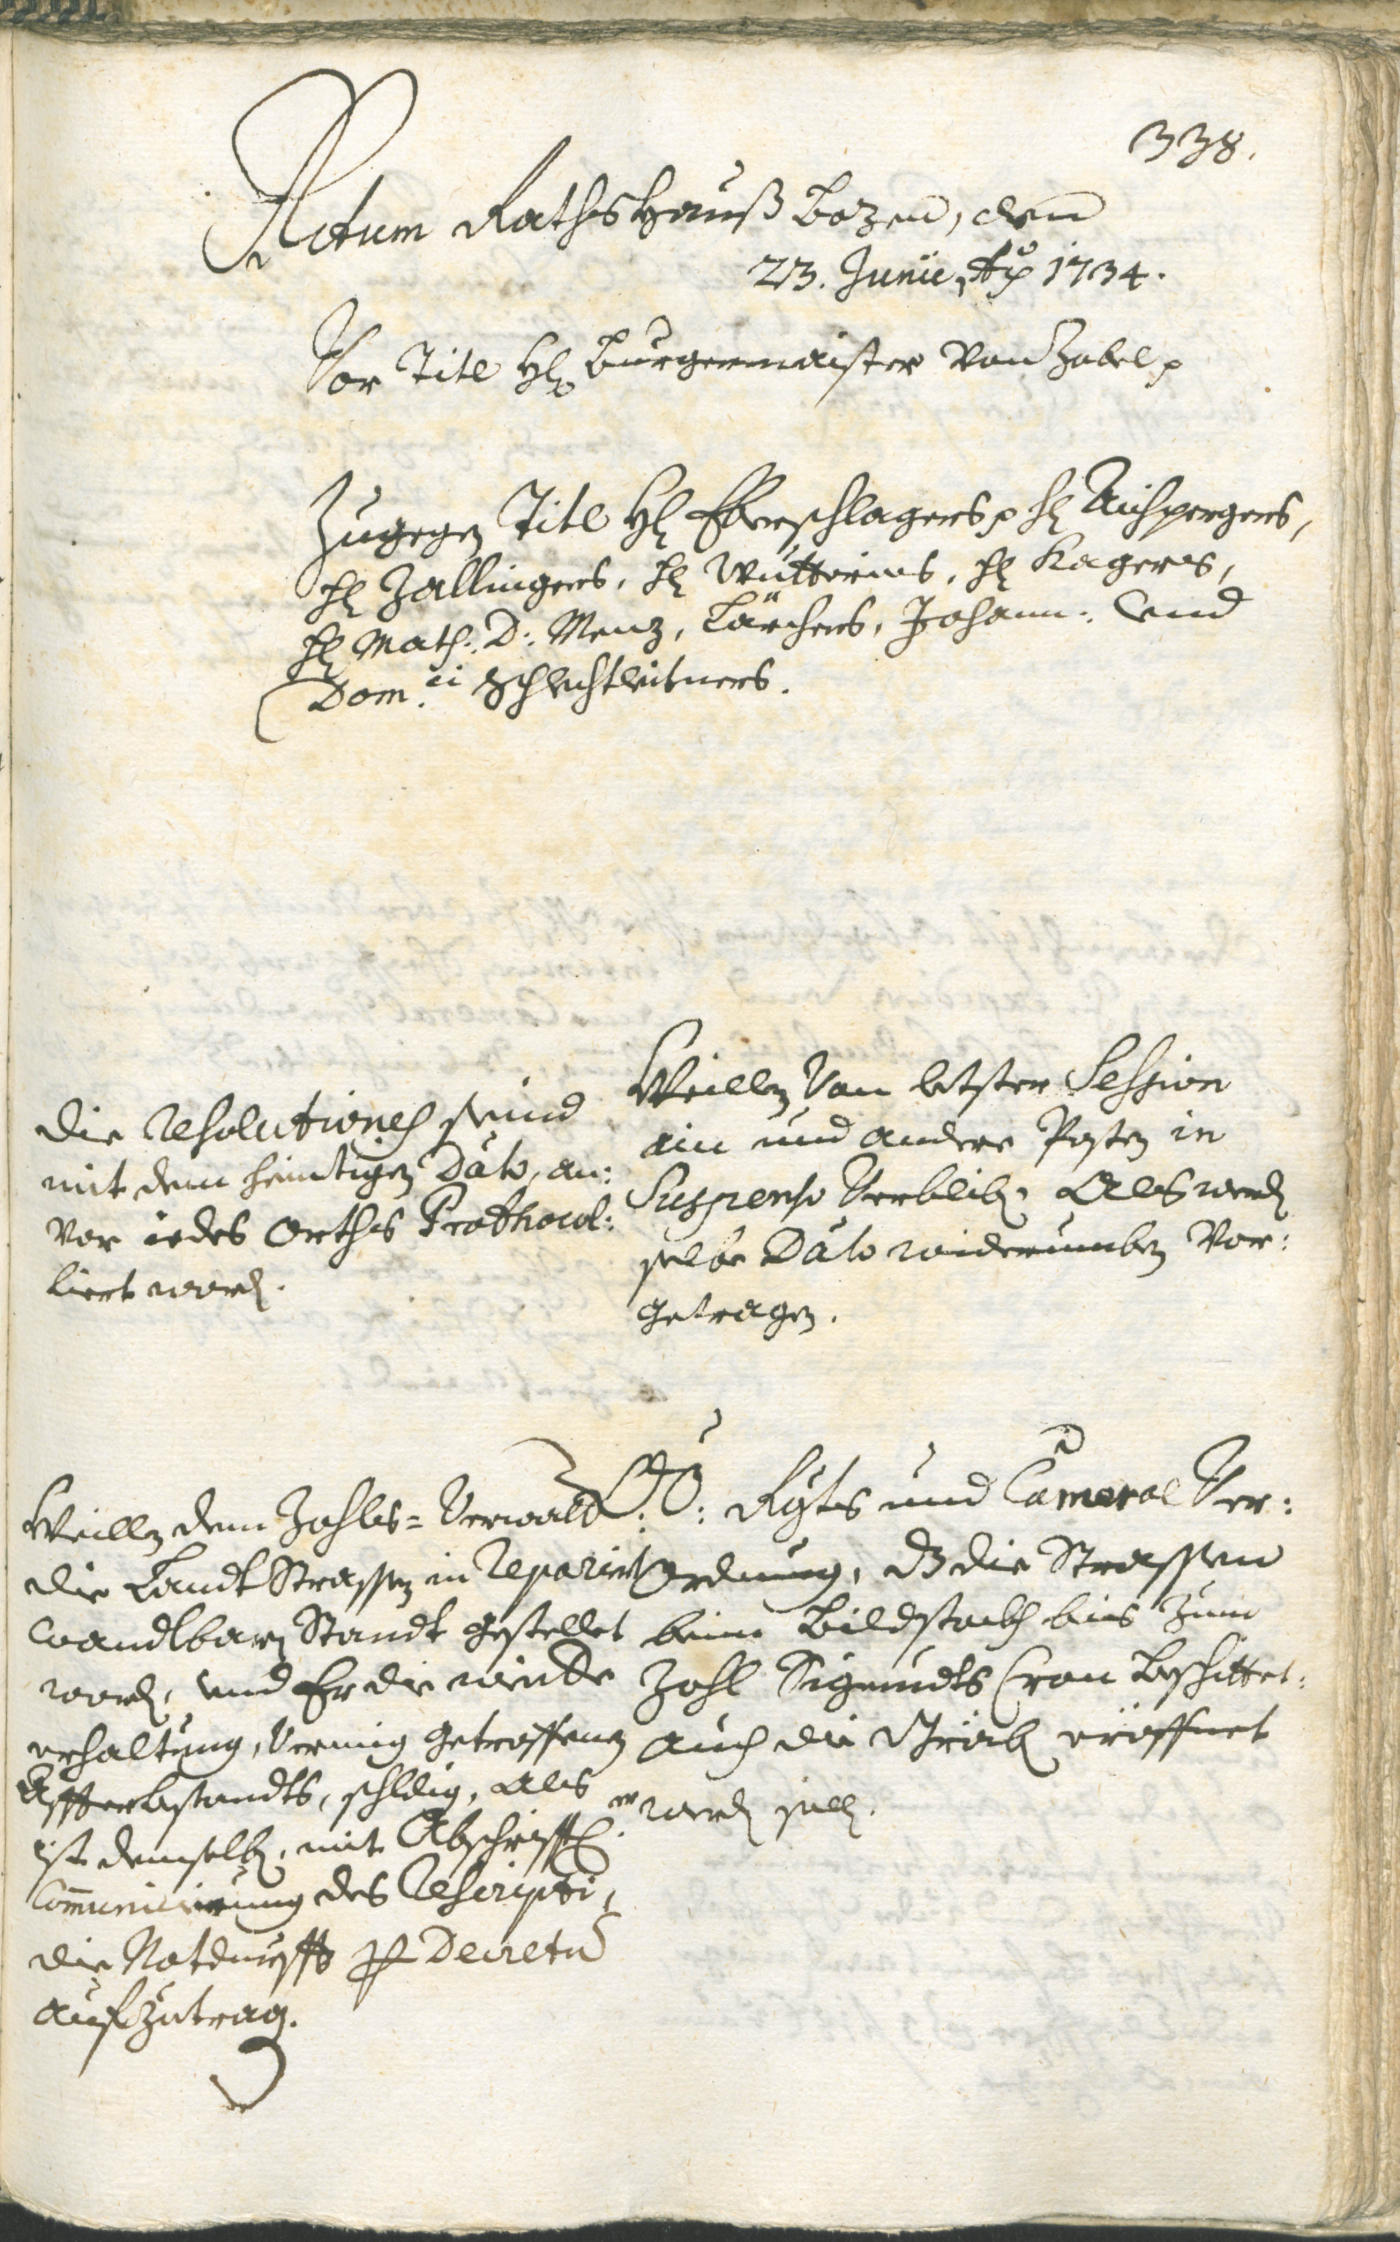 338.
Actum Rathshauß Bozen, den
23. Junii Ao 1734.
Vor Titl H: Burgermaister von Zobel p
Zugegen Titl H: Eberschlagers p H: Aichpergers,
H: Zallingers, H: Wutterins, H: Kagers,
H: Math: D: Menz, Lärchers, Johann: und
Dom:ci Schlechtleitners.
Die Resolutiones seind
mit dem heintigen Dato, an:
vor iedes Orths Prothocol:
liert word.
Weillen von letster Session
ain und andere Posten in
Suspenso verblib, Als werd
selbe Dato widerumben vor:
getragen.
Weillen dem Zohls-Verwalt:
die Landt Strassen in reparirt
wandlbarn Standt gestellet
word, und Er die
erhaltung, vermig getroffenen
Affterbstandts, schldig, als
ist demselb, mit Abschrifft:
Communicierung des Rescripti,
die Notdurfft per Decretu
aufzutrag.
O: Ö: Rgts und Cameral Ver:
ordnung, dz die Strassen
beim Bildstockh bis zum
Zohl Sigmudts Cron beschittet:
auch die eröffnet
werd soll.